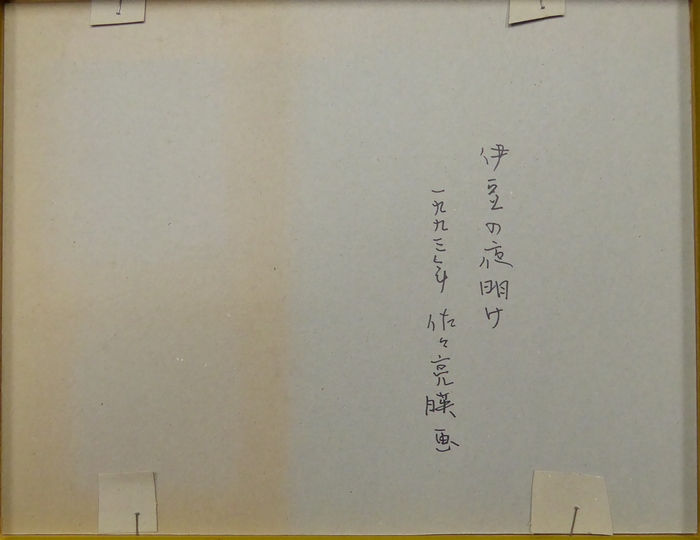 伊豆の夜明け
一九九三年 佐々亮暎画